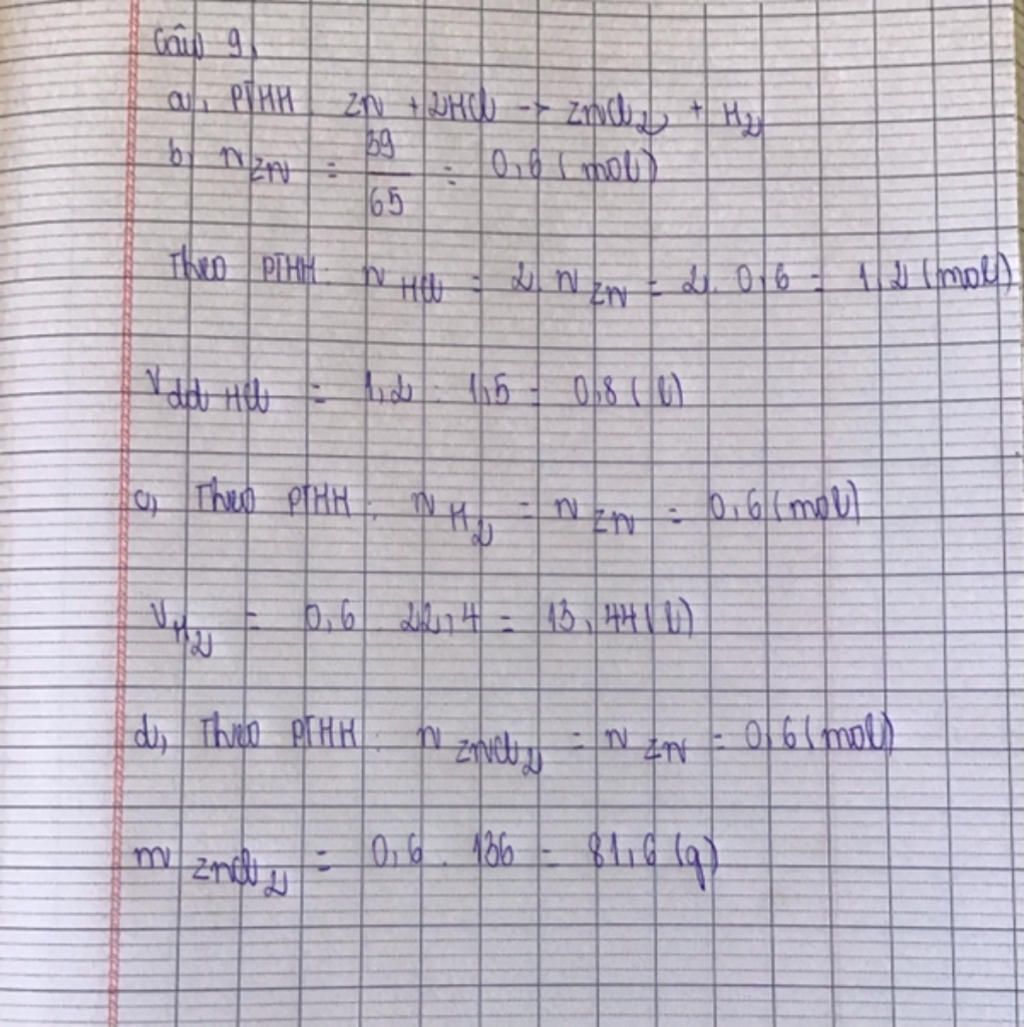 Câu 9,
a), PTHH Zn + 2HCl → ZnCl₂ + H₂
b) nZn = 39/65 = 0,6 (mol)
Theo PTHH: nHCl = 2.nZn = 2.0,6 = 1,2 (mol)
Vdd HCl = 1,2 : 1,5 = 0,8 (l)
c, Theo PTHH: nH₂ = nZn = 0,6 (mol)
VH₂ = 0,6 . 22,4 = 13,44 (l)
d, Theo PTHH: nZnCl₂ = nZn = 0,6 (mol)
mZnCl₂ = 0,6 . 136 = 81,6 (g)